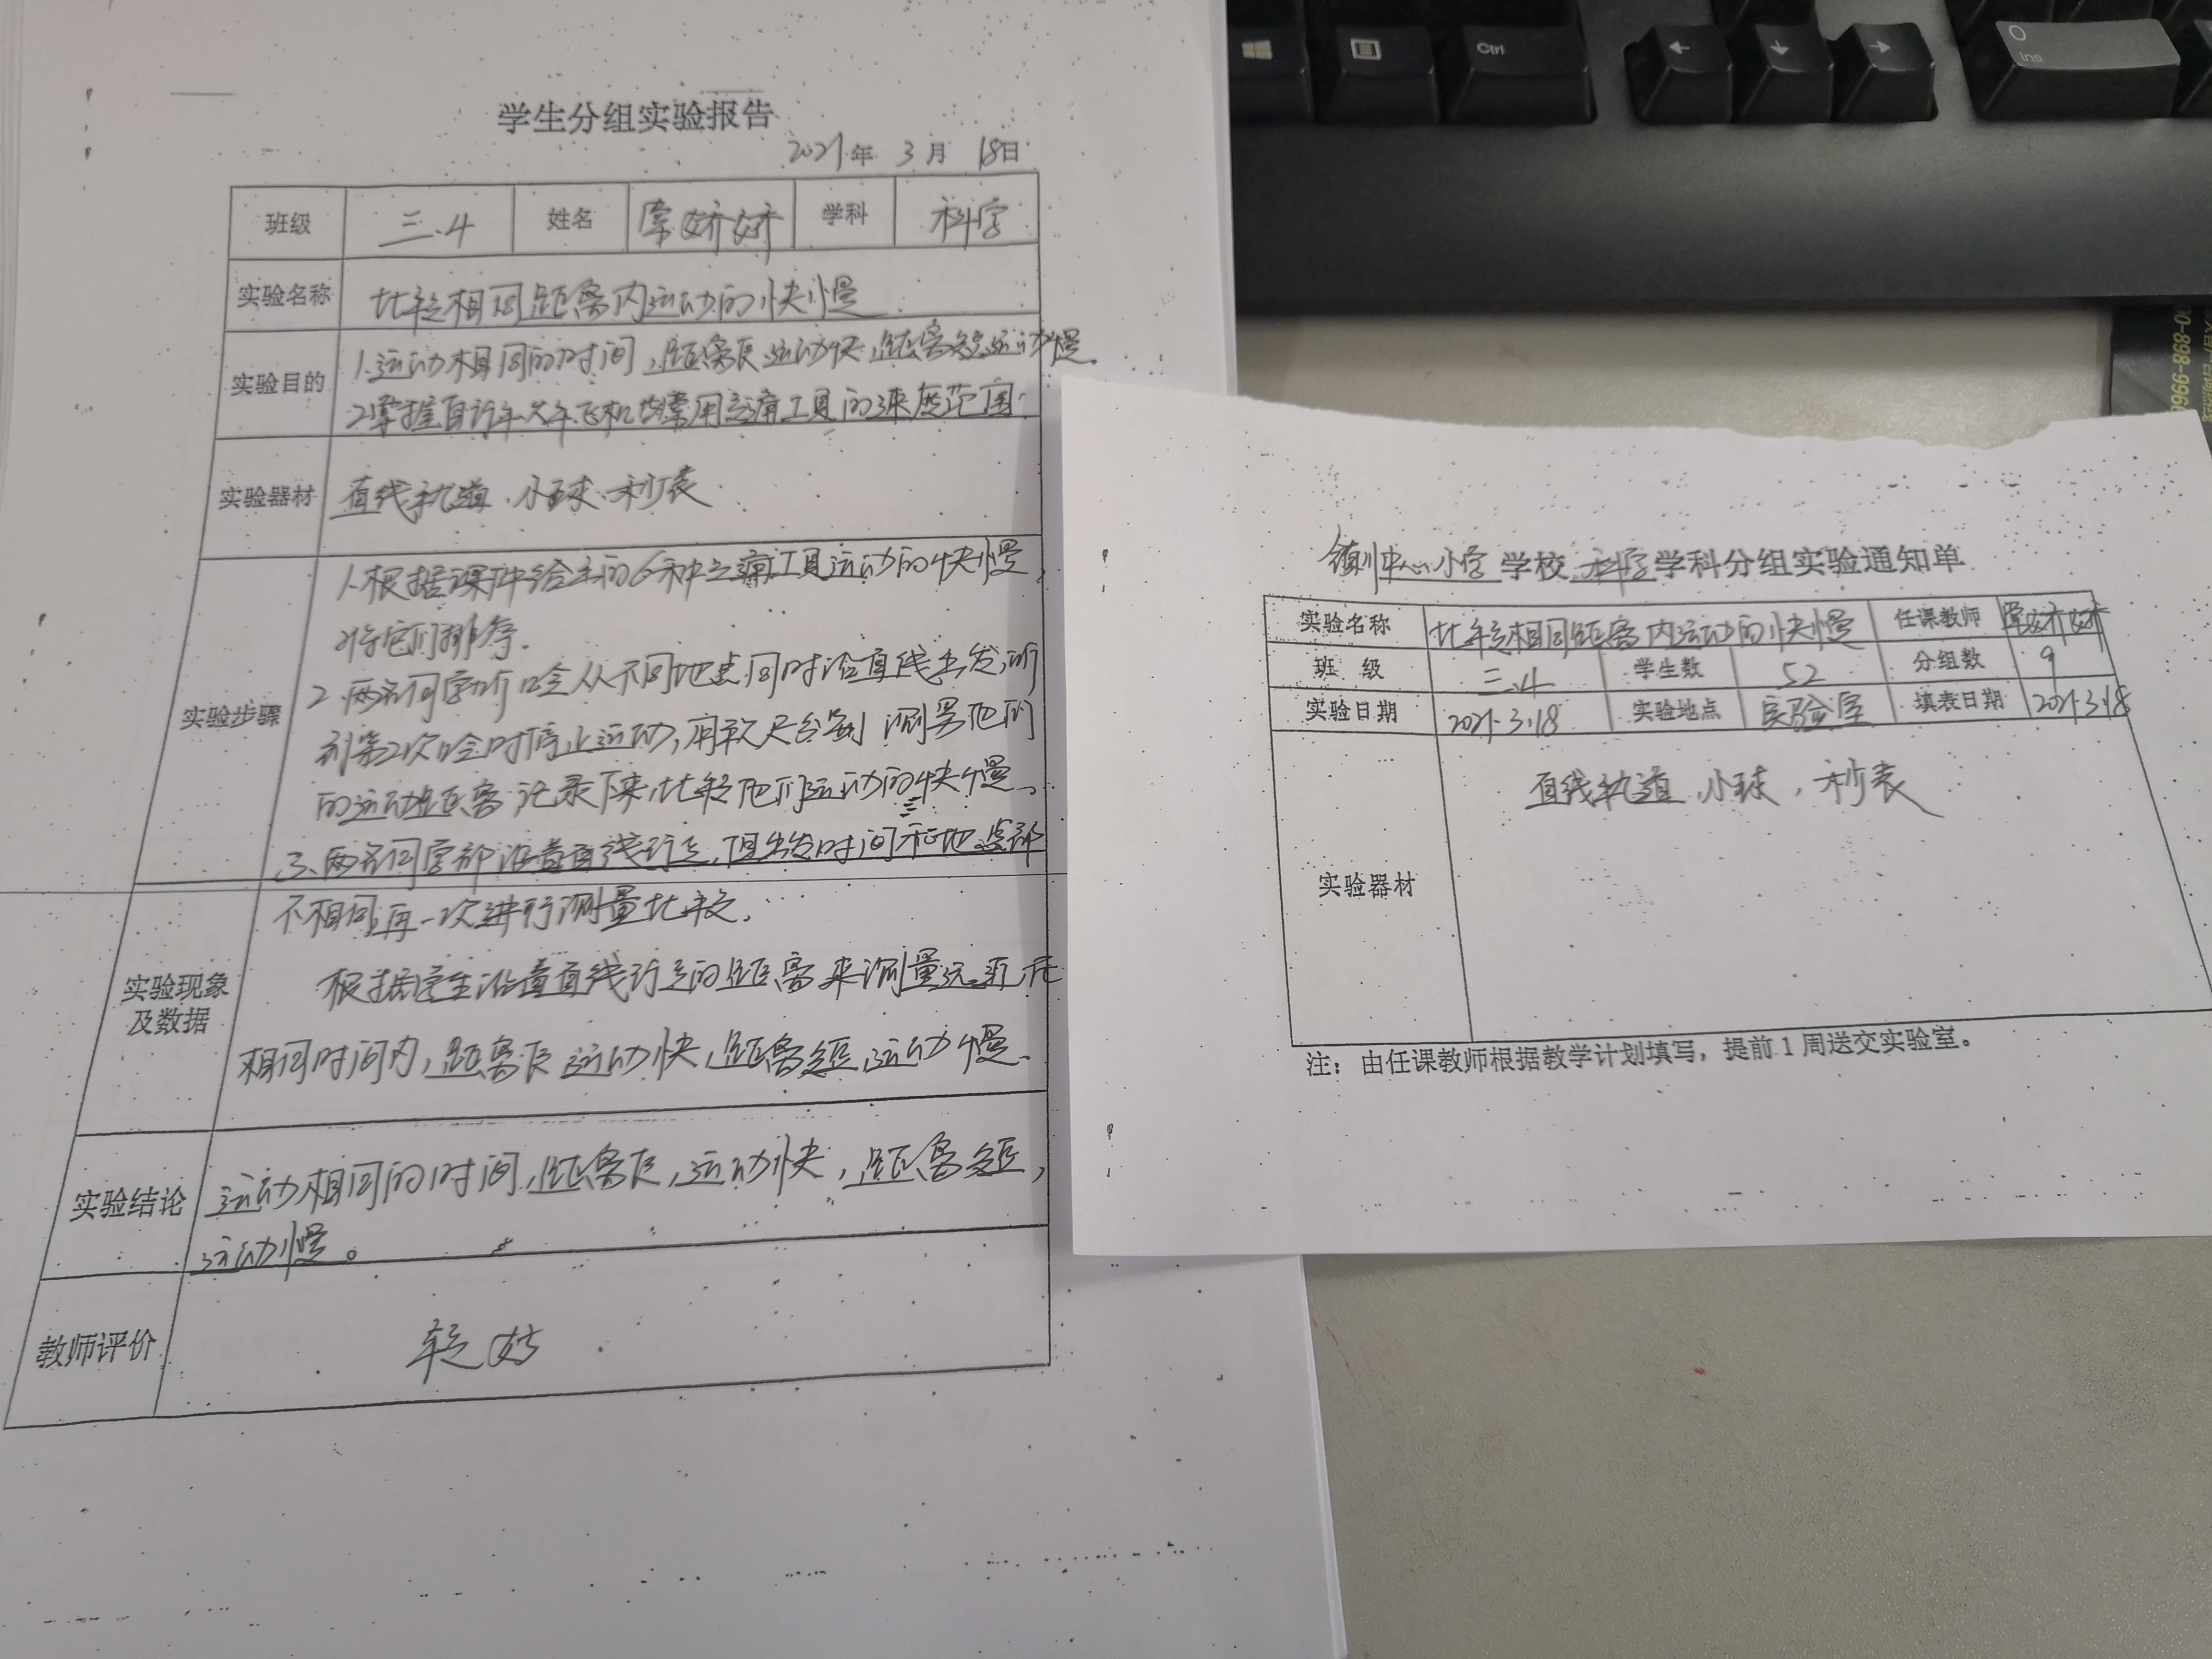 学生分组实验报告
2021年 3月 18日
班级 三.4 姓名 娇娇 学科 科学
实验名称 比较相同距离内运动的快慢.
实验目的 1.运动相同的时间,距离长运动快,距离短运动慢。
2.掌握自行车、火车、飞机等常用交通工具的速度范围.
实验器材 直线轨道、小球、秒表
实验步骤 1.根据课件给出的6种交通工具运动的快慢,
将它们排序.
2.两名同学听口令从不同地点同时沿直线出发,听
到第2次口令时停止运动,用软尺分别测量他们
的运动距离,记录下来,比较他们运动的快慢。
3.两名同学都沿着直线行走,但出发时间和地点都
不相同,再一次进行测量比较.
实验现象及数据 根据学生沿着直线行走的距离来测量远近,在
相同时间内,距离长运动快,距离短,运动慢.
实验结论 运动相同的时间,距离长,运动快,距离短,
运动慢。
教师评价 较好
Ctrl
0
Ins
9966-868-0
中心小学 学校 科学 学科分组实验通知单
实验名称 比较相同距离内运动的快慢 任课教师 娇娇
班 级 三.4 学生数 52 分组数 9
实验日期 2021.3.18 实验地点 实验室 填表日期 2021.3.18
实验器材 直线轨道,小球,秒表
注:由任课教师根据教学计划填写,提前1周送交实验室。